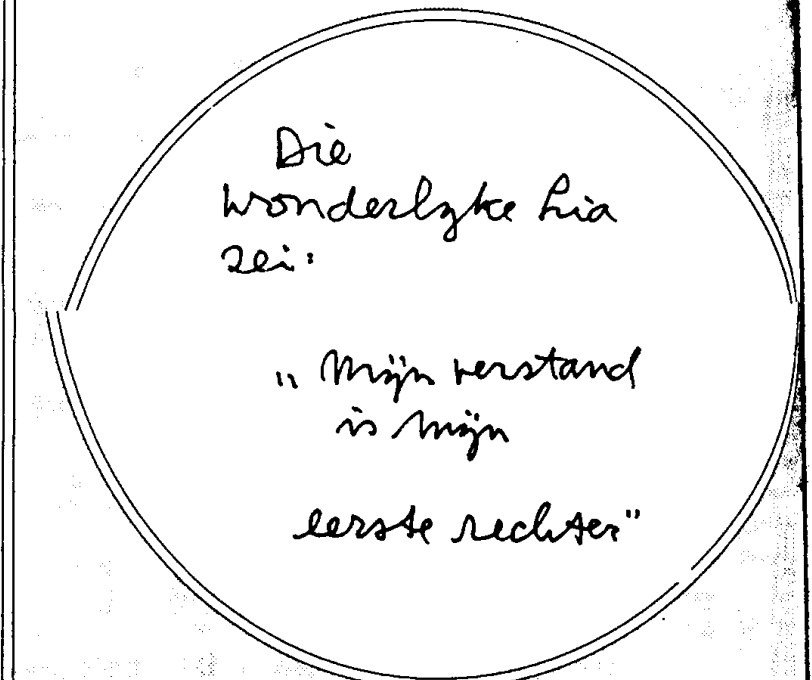 Die
wonderlyke Lia
zei:
„Mijn verstand
is mijn
eerste rechter"